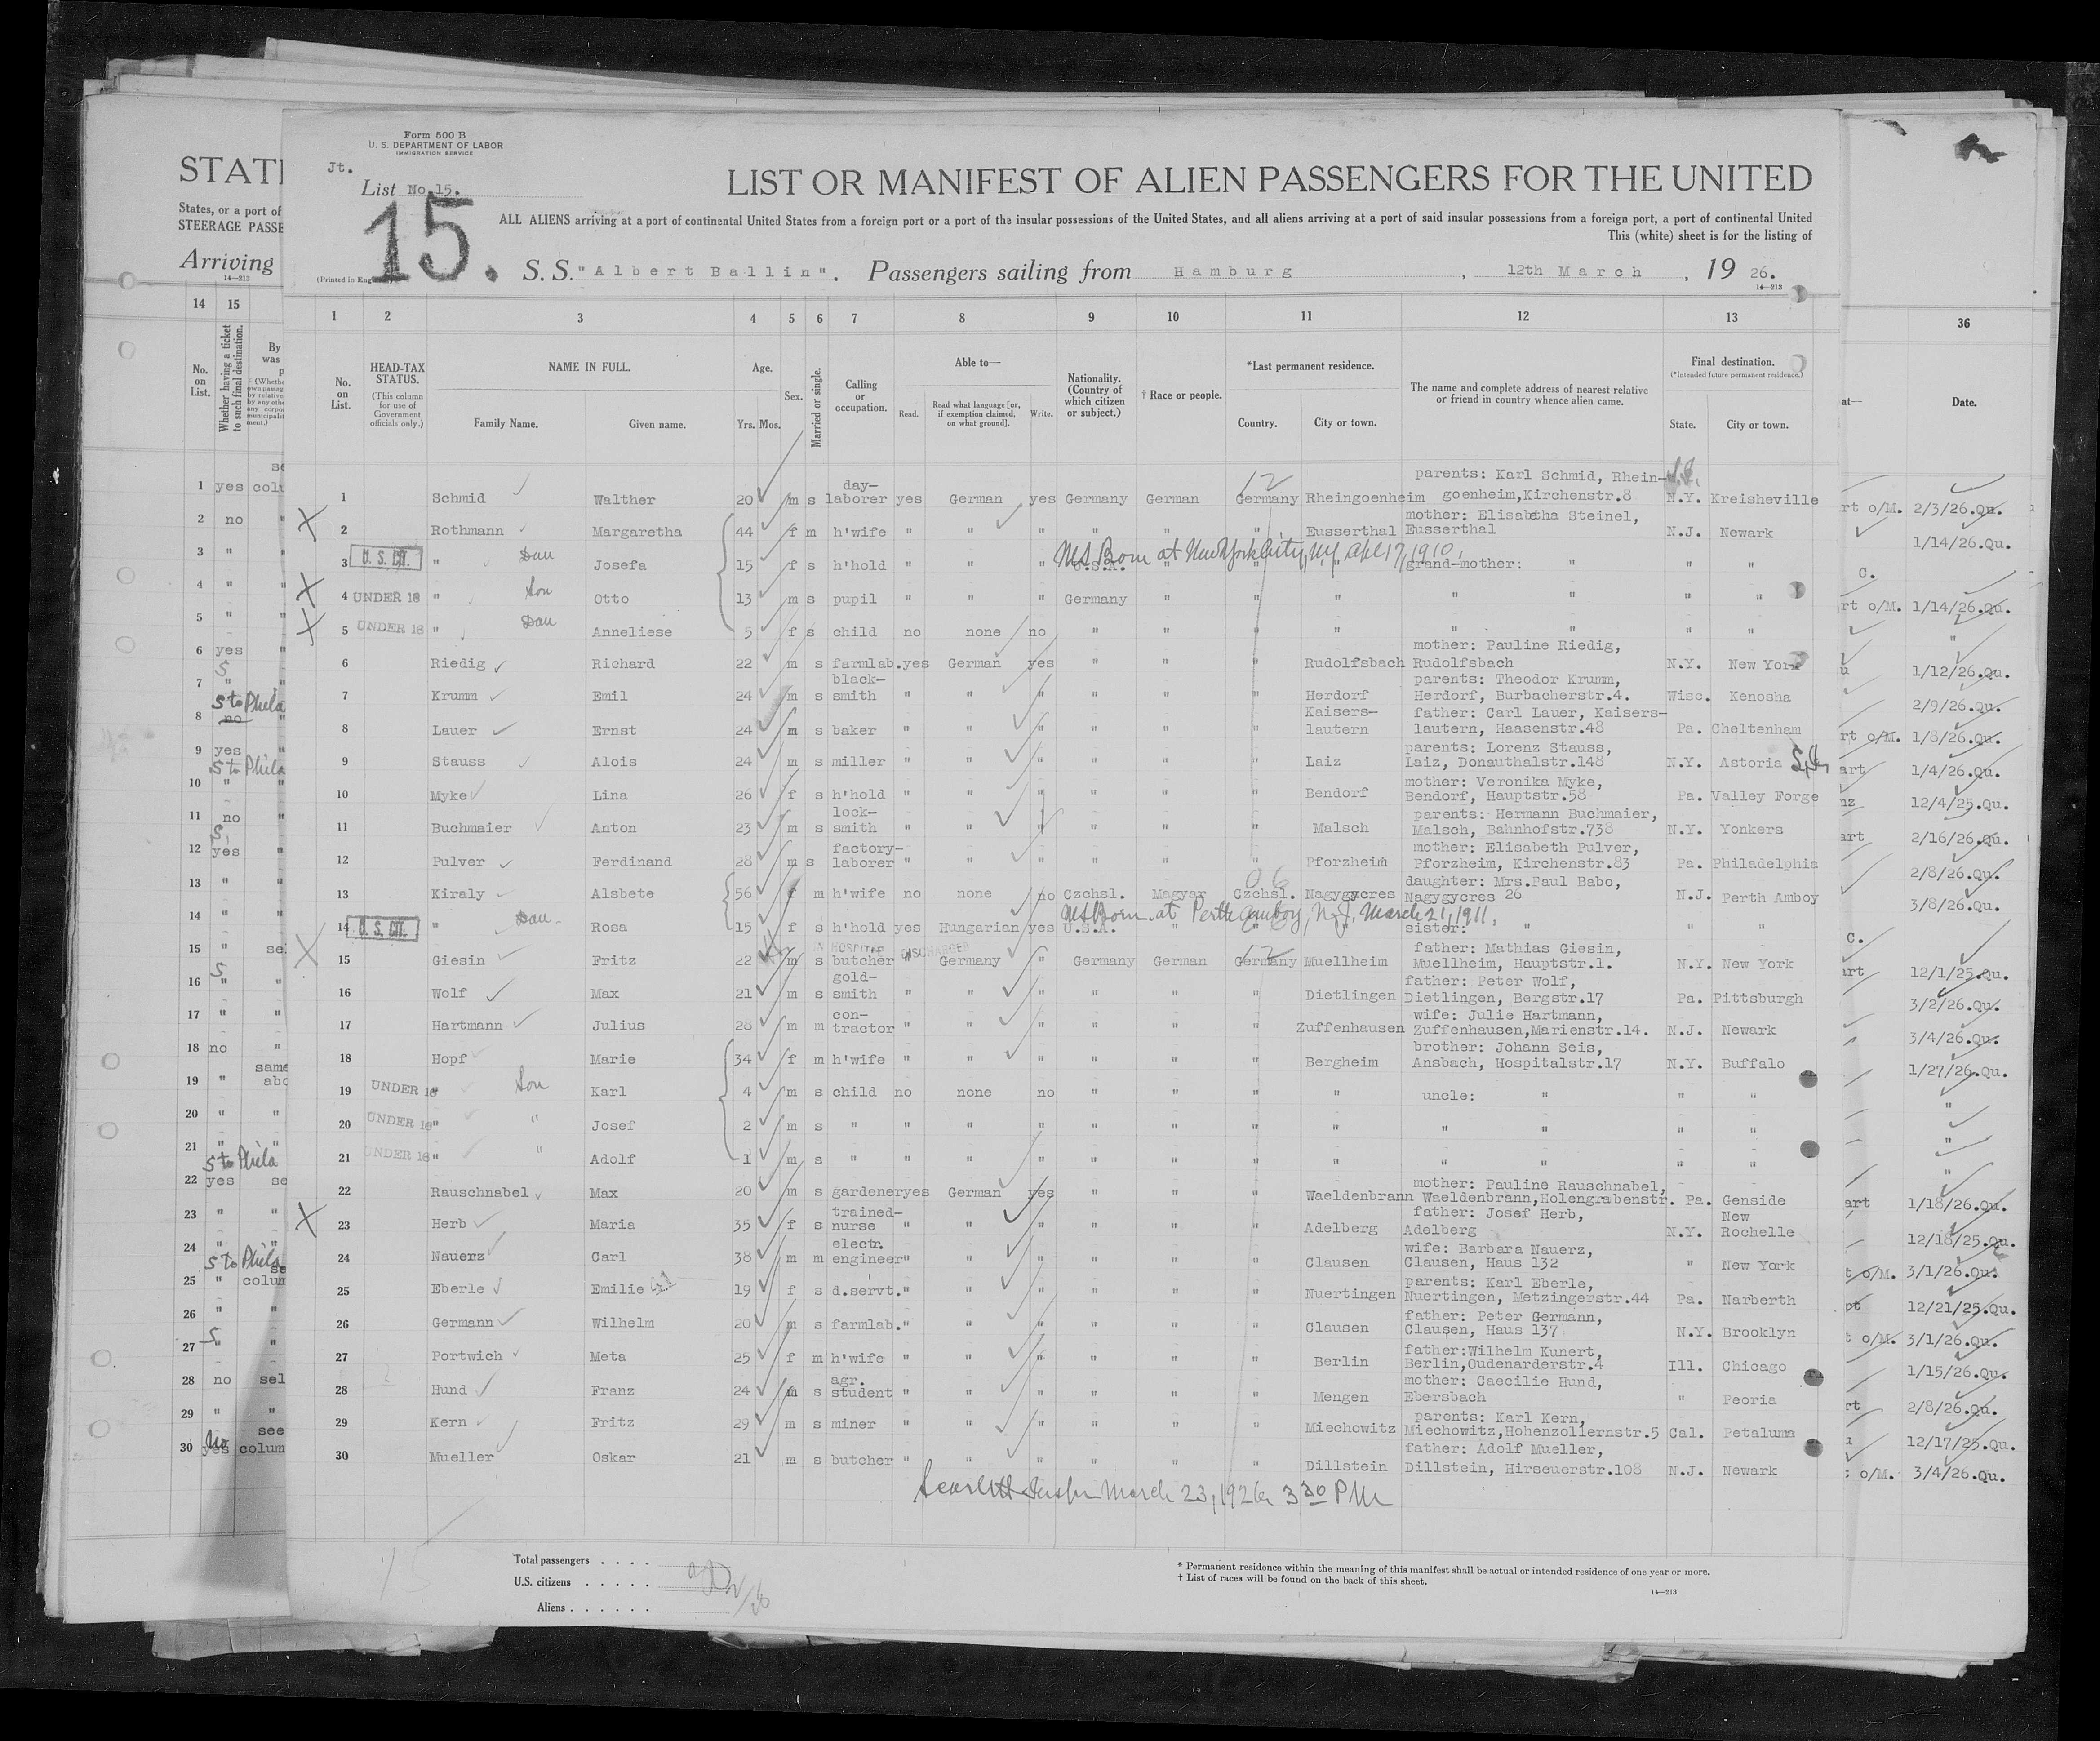 Form 500 B
U. S. DEPARTMENT OF LABOR
IMMIGRATION SERVICE
Jt.
List No. 15.
15.
LIST OR MANIFEST OF ALIEN PASSENGERS FOR THE UNITED
ALL ALIENS arriving at a port of continental United States from a foreign port or a port of the insular possessions of the United States, and all aliens arriving at a port of said insular possessions from a foreign port, a port of continental United
This (white) sheet is for the listing of
S. S. "Albert Ballin". Passengers sailing from Hamburg, 12th March, 19 26.
14—213
STATE
States, or a port of
STEERAGE PASSE
Arriving
14—213
1 2 3 4 5 6 7 8 9 10 11 12 13
14 15 36
No. on List. HEAD-TAX STATUS. (This column for use of Government officials only.) NAME IN FULL. Family Name. Given name. Age. Yrs. Mos. Sex. Married or single. Calling or occupation. Able to— Read. Read what language [or, if exemption claimed, on what ground]. Write. Nationality. (Country of which citizen or subject.) † Race or people. *Last permanent residence. Country. City or town. The name and complete address of nearest relative or friend in country whence alien came. Final destination. (*Intended future permanent residence.) State. City or town.
No. on List. Whether having a ticket to such final destination. Date.
1 Schmid Walther 20 m s day-laborer yes German yes Germany German Germany Rheingoenheim parents: Karl Schmid, Rhein-goenheim,Kirchenstr.8 N.Y. Kreisheville 2/3/26.Qu.
2 Rothmann Margaretha 44 f m h'wife " " " " " " Eusserthal mother: Elisabetha Steinel, Eusserthal N.J. Newark 1/14/26.Qu.
3 U. S. CIT. " Dau Josefa 15 f s h'hold " " " U.S.A. " " " grand-mother: " " "
Born at New York City, NY, Apl 17, 1910.
4 UNDER 16 " Son Otto 13 m s pupil " " " Germany " " " " " " " 1/14/26.Qu.
5 UNDER 16 " Dau Anneliese 5 f s child no none no " " " " " " " " "
6 Riedig Richard 22 m s farmlab. yes German yes " " " Rudolfsbach mother: Pauline Riedig, Rudolfsbach N.Y. New York 1/12/26.Qu.
7 Krumm Emil 24 m s black-smith " " " " " " Herdorf parents: Theodor Krumm, Herdorf, Burbacherstr.4. Wisc. Kenosha 2/9/26.Qu.
8 Lauer Ernst 24 m s baker " " " " " " Kaisers-lautern father: Carl Lauer, Kaisers-lautern, Haasenstr.48 Pa. Cheltenham 1/8/26.Qu.
9 Stauss Alois 24 m s miller " " " " " " Laiz parents: Lorenz Stauss, Laiz, Donauthalstr.148 N.Y. Astoria 1/4/26.Qu.
10 Myke Lina 26 f s h'hold " " " " " " Bendorf mother: Veronika Myke, Bendorf, Hauptstr.58 Pa. Valley Forge 12/4/25.Qu.
11 Buchmaier Anton 23 m s lock-smith " " " " " " Malsch parents: Hermann Buchmaier, Malsch, Bahnhofstr.738 N.Y. Yonkers 2/16/26.Qu.
12 Pulver Ferdinand 28 m s factory-laborer " " " " " " Pforzheim mother: Elisabeth Pulver, Pforzheim, Kirchenstr.83 Pa. Philadelphia 2/8/26.Qu.
13 Kiraly Alsbete 56 f m h'wife no none no Czchsl. Magyar Czchsl. Nagygycres daughter: Mrs.Paul Babo, Nagygycres 26 N.J. Perth Amboy 3/8/26.Qu.
14 U. S. CIT. " Dau Rosa 15 f s h'hold yes Hungarian yes U.S.A. " " " sister: " " "
Born at Perth Amboy, N.J. March 21, 1911.
15 Giesin Fritz 22 m s butcher " Germany " Germany German Germany Muellheim father: Mathias Giesin, Muellheim, Hauptstr.1. N.Y. New York 12/1/25.Qu.
IN HOSPITAL DISCHARGED
16 Wolf Max 21 m s gold-smith " " " " " " Dietlingen father: Peter Wolf, Dietlingen, Bergstr.17 Pa. Pittsburgh 3/2/26.Qu.
17 Hartmann Julius 28 m m con-tractor " " " " " " Zuffenhausen wife: Julie Hartmann, Zuffenhausen,Marienstr.14. N.J. Newark 3/4/26.Qu.
18 Hopf Marie 34 f m h'wife " " " " " " Bergheim brother: Johann Seis, Ansbach, Hospitalstr.17 N.Y. Buffalo 1/27/26.Qu.
19 UNDER 16 " Son Karl 4 m s child no none no " " " " uncle: " " " "
20 UNDER 16 " " Josef 2 m s " " " " " " " " " " " " "
21 UNDER 16 " " Adolf 1 m s " " " " " " " " " " " " "
22 Rauschnabel Max 20 m s gardener yes German yes " " " Waeldenbrann mother: Pauline Rauschnabel, Waeldenbrann,Holengrabenstr. Pa. Genside 1/18/26.Qu.
23 Herb Maria 35 f s trained-nurse " " " " " " Adelberg father: Josef Herb, Adelberg N.Y. New Rochelle 12/18/25.Qu.
24 Nauerz Carl 38 m m electr. engineer " " " " " " Clausen wife: Barbara Nauerz, Clausen, Haus 132 " New York 3/1/26.Qu.
25 Eberle Emilie 19 f s d.servt. " " " " " " Nuertingen parents: Karl Eberle, Nuertingen, Metzingerstr.44 Pa. Narberth 12/21/25.Qu.
26 Germann Wilhelm 20 m s farmlab. " " " " " " Clausen father: Peter Germann, Clausen, Haus 137 N.Y. Brooklyn 3/1/26.Qu.
27 Portwich Meta 25 f m h'wife " " " " " " Berlin father:Wilhelm Kunert, Berlin,Oudenarderstr.4 Ill. Chicago 1/15/26.Qu.
28 Hund Franz 24 m s agr. student " " " " " " Mengen mother: Caecilie Hund, Ebersbach " Peoria 2/8/26.Qu.
29 Kern Fritz 29 m s miner " " " " " " Miechowitz parents: Karl Kern, Miechowitz,Hohenzollernstr.5 Cal. Petaluma 12/17/25.Qu.
30 Mueller Oskar 21 m s butcher " " " " " " Dillstein father: Adolf Mueller, Dillstein, Hirseuerstr.108 N.J. Newark 3/4/26.Qu.
March 23, 1926 3 30 PM
Total passengers . . . .
U.S. citizens . . . . .
Aliens . . . . . .
* Permanent residence within the meaning of this manifest shall be actual or intended residence of one year or more.
† List of races will be found on the back of this sheet.
14—213